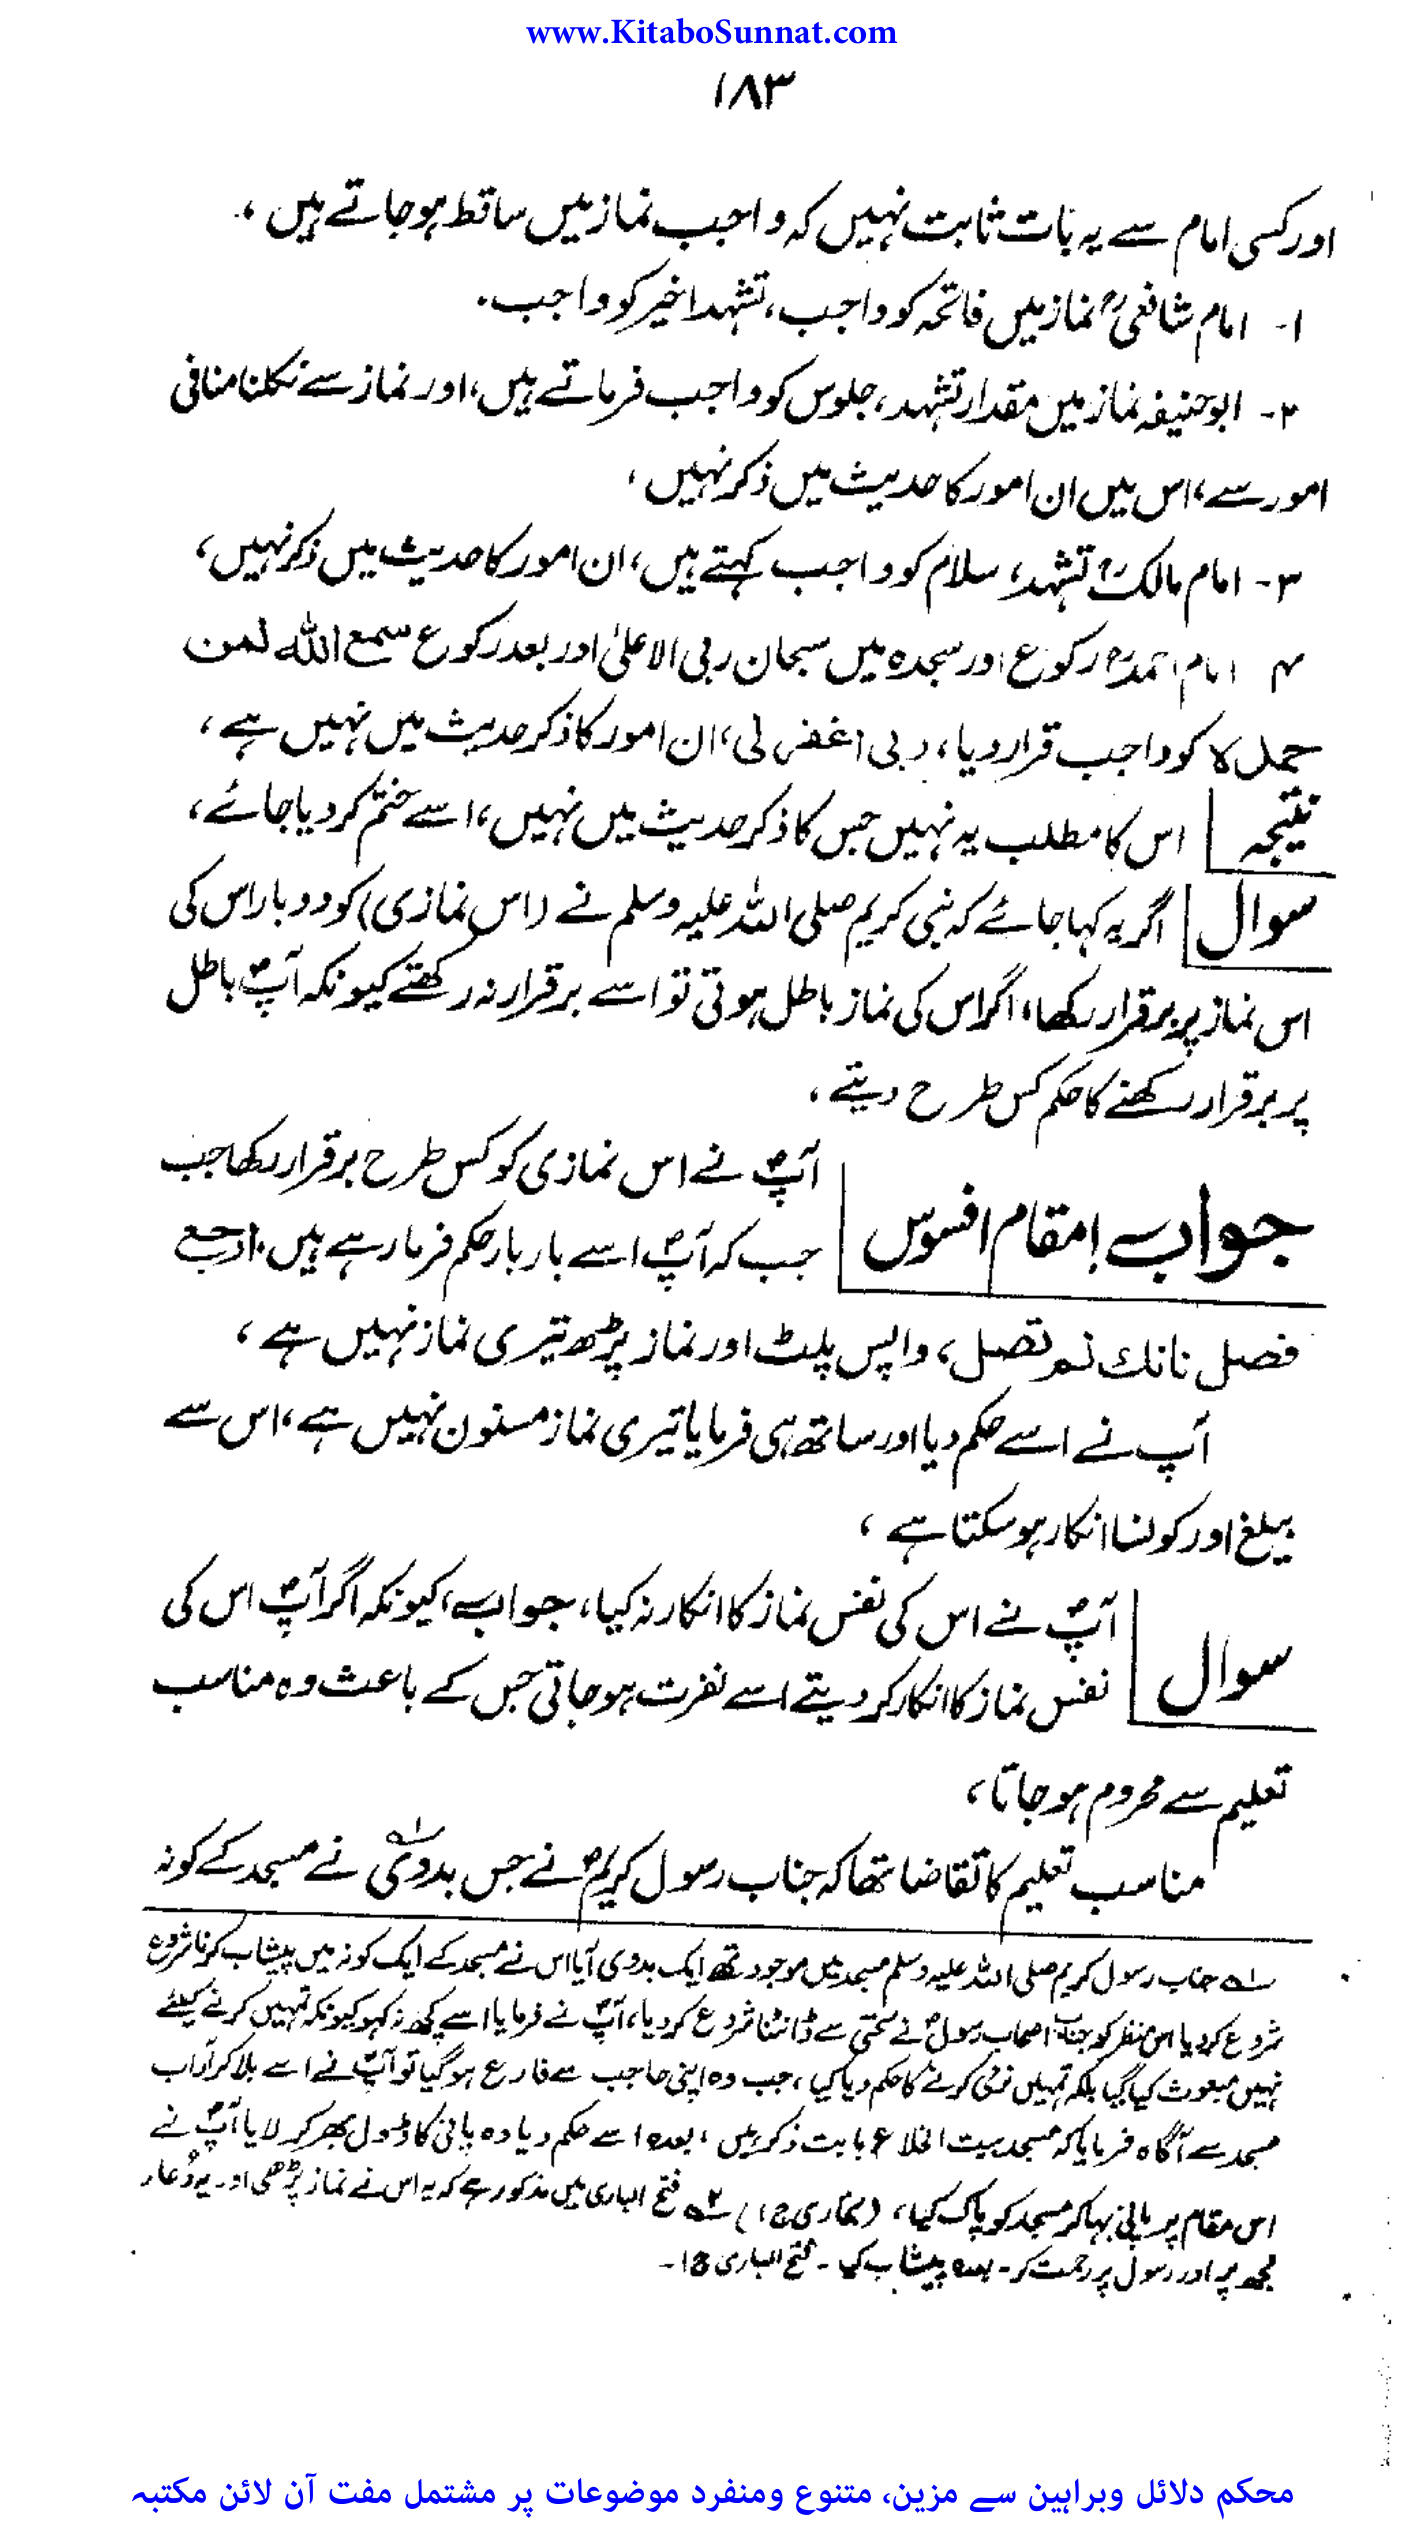 www.KitaboSunnat.com
۱۸۳
اور کسی امام سے یہ بات ثابت نہیں کہ واجب نماز میں ساقط ہو جاتے ہیں،
۱- امام شافعیؒ نماز میں فاتحہ کو واجب، تشہد اخیر کو واجب.
۲- ابو حنیفہ نماز میں مقدار تشہد، جلوس کو واجب فرماتے ہیں، اور نماز سے نکلنا منافی
امور سے، اس میں ان امور کا حدیث میں ذکر نہیں،
۳- امام مالکؒ تشہد، سلام کو واجب کہتے ہیں، ان امور کا حدیث میں ذکر نہیں،
۴ امام احمدؒ رکوع اور سجدہ میں سبحان ربی الاعلیٰ اور بعد رکوع سمع الله لمن
حمدہ کو واجب قرار دیا، ربی اغفر لی، ان امور کا ذکر حدیث میں نہیں ہے،
نتیجہ اس کا مطلب یہ نہیں جس کا ذکر حدیث میں نہیں، اسے ختم کر دیا جائے،
سوال اگر یہ کہا جائے کہ نبی کریم صلی اللہ علیہ وسلم نے (اس نمازی) کو دو بار اس کی
اس نماز پر برقرار رکھا، اگر اس کی نماز باطل ہوتی تو اسے برقرار نہ رکھتے کیونکہ آپؐ باطل
پر برقرار رکھنے کا حکم کس طرح دیتے،
جواب! مقام افسوس آپؐ نے اس نمازی کو کس طرح برقرار رکھا جب
جب کہ آپؐ اسے بار بار حکم فرما رہے ہیں. ارجع
فصل فانك لم تصل، واپس پلٹ اور نماز پڑھ تیری نماز نہیں ہے،
آپ نے اسے حکم دیا اور ساتھ ہی فرمایا تیری نماز مسنون نہیں ہے، اس سے
بیلغ اور کونسا انکار ہو سکتا ہے،
سوال آپؐ نے اس کی نفس نماز کا انکار نہ کیا، جواب، کیونکہ اگر آپؐ اس کی
نفس نماز کا انکار کر دیتے اسے نفرت ہو جاتی جس کے باعث وہ مناسب
تعلیم سے محروم ہو جاتا،
مناسب تعلیم کا تقاضا تھا کہ جناب رسول کریمؐ نے جس بدوی؂۱ نے مسجد کے کونہ
؂۱ جناب رسول کریم صلی اللہ علیہ وسلم مسجد میں موجود تھے ایک بدوی آیا اس نے مسجد کے ایک کونہ میں پیشاب کرنا شروع
شروع کر دیا اس منظر کو جناب اصحاب رسولؐ نے سختی سے ڈانٹنا شروع کر دیا، آپؐ نے فرمایا اسے کچھ نہ کہو کیونکہ تمہیں کرنے کیلئے
نہیں مبعوث کیا گیا بلکہ تمہیں نرمی کرنے کا حکم دیا گیا، جب وہ اپنی حاجب سے فارع ہو گیا تو آپؐ نے اسے بلا کر آداب
مسجد سے آگاہ فرمایا کہ مسجد بیت الخلاء بابت ذکر ہیں، بعدہ اسے حکم دیا وہ پانی کا ڈول بھر کر لایا آپؐ نے
اس مقام پر پانی بہا کر مسجد کو پاک کیا، (بخاری ج۱) ؂۲ فتح الباری میں مذکور ہے کہ یہ اس نے نماز پڑھی اور یہ دُعار
مجھ پر اور رسول پر رحمت کر۔ بعدہ پیشاب کیا۔ فتح الباری ج۱۔
محکم دلائل وبراہین سے مزین، متنوع ومنفرد موضوعات پر مشتمل مفت آن لائن مکتبہ